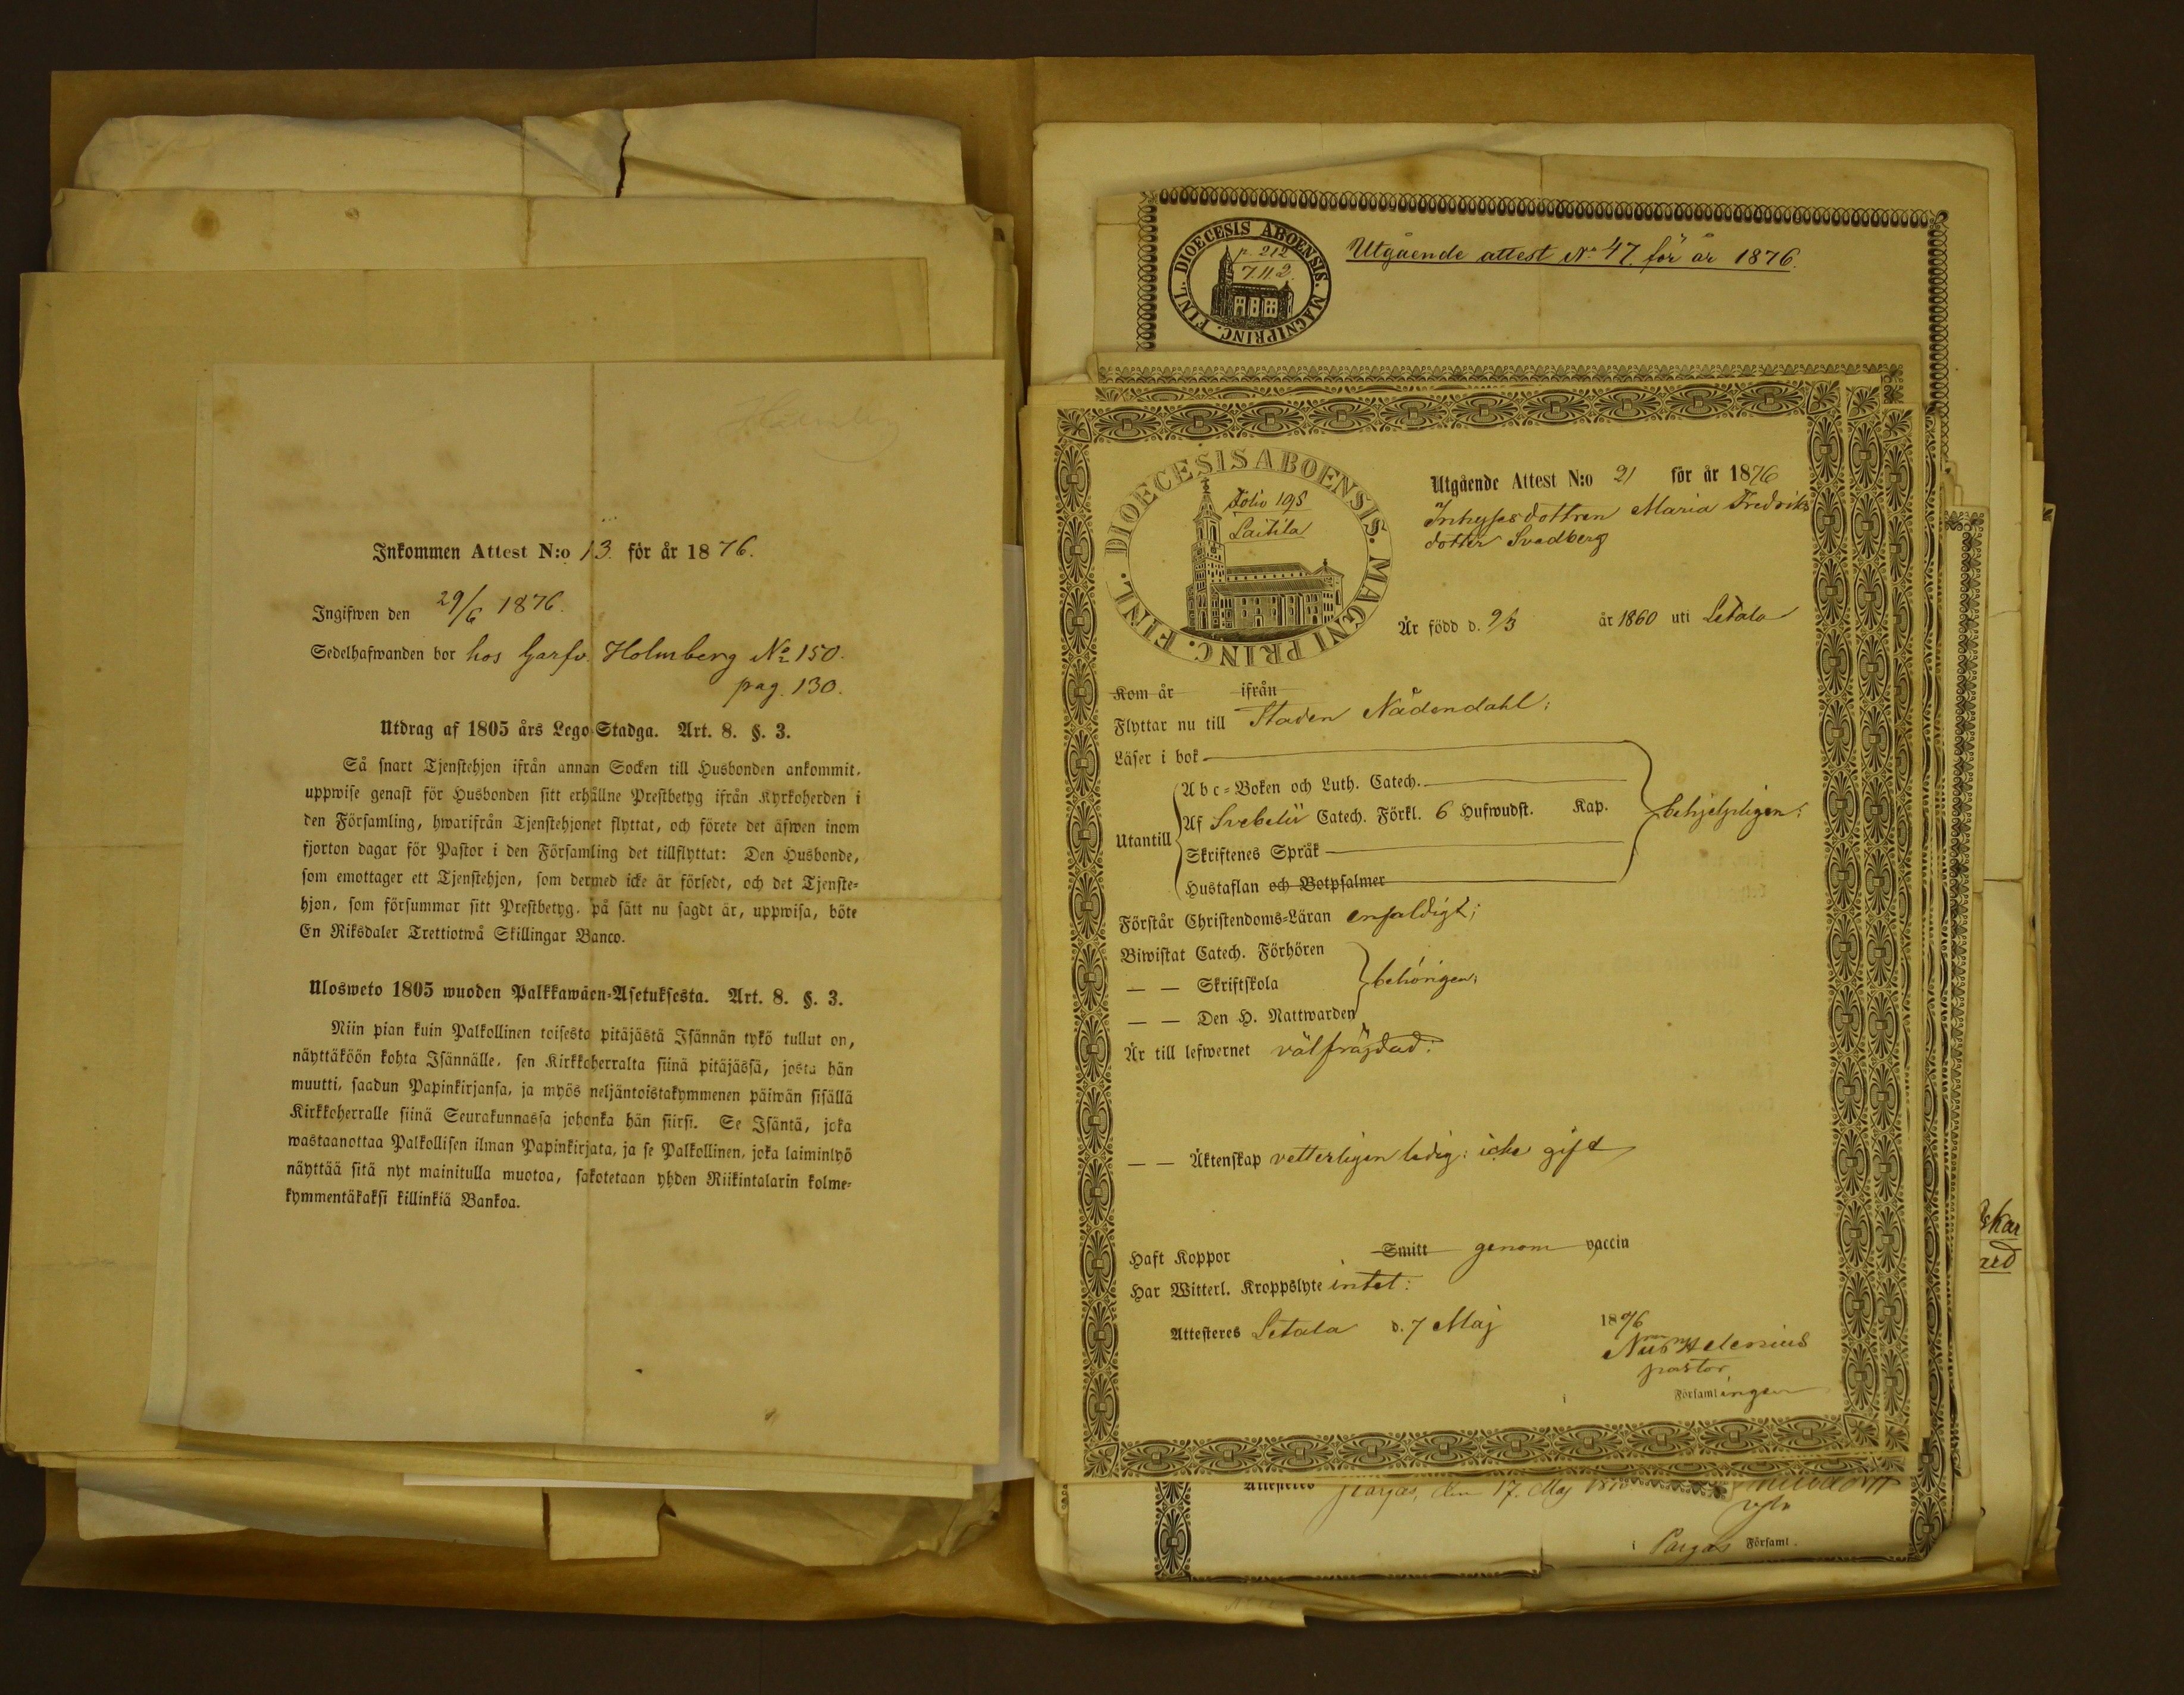 Inkommen Attest N:o 13. för år 1876.
Ingifwen den 29/6 1876.
Sedelhafwanden bor hos Garfv. Holmberg No 150.
pag. 130.
Utdrag af 1805 års Lego-Stadga. Art. 8. §. 3.
Så snart Tjenstehjon ifrån annan Socken till Husbonden ankommit,
uppwise genast för Husbonden sitt erhållne Prestbetyg ifrån Kyrkoherden i
den Församling, hwarifrån Tjenstehjonet flyttat, och förete det äfwen inom
fjorton dagar för Pastor i den Församling det tillflyttat: Den Husbonde,
som emottager ett Tjenstehjon, som dermed icke är försedt, och det Tjenste-
hjon, som försummar sitt Prestbetyg, på sätt nu sagdt är, uppwisa, böte
En Riksdaler Trettiotwå Skillingar Banco.
Ulosweto 1805 wuoden Palkkawäen-Asetuksesta. Art. 8. §. 3.
Niin pian kuin Palkollinen toisesta pitäjästä Isännän tykö tullut on,
näyttäköön kohta Isännälle, sen Kirkkoherralta siinä pitäjässä, josta hän
muutti, saadun Papinkirjansa, ja myös neljäntoistakymmenen päiwän sisällä
Kirkkoherralle siinä Seurakunnassa johonka hän siirsi. Se Isäntä, joka
wastaanottaa Palkollisen ilman Papinkirjata, ja se Palkollinen, joka laiminlyö
näyttää sitä nyt mainitulla muotoa, sakotetaan yhden Riikintalarin kolme-
kymmentäkaksi killinkiä Bankoa.
DIOECESIS ABOENSIS. MAGNI PRINC. FINL.
p. 212
7.11.2.
Utgående attest No 47. för år 1876.
DIOECESIS ABOENSIS. MAGNI PRINC. FINL.
Folio 195
Laitila
Utgående Attest N:o 21 för år 1876
Inhysesdottren Maria Fredriks
dotter Svedberg
Är född d. 9/3 år 1860 uti Letala
Kom år ifrån
Flyttar nu till Staden Nådendahl;
Läser i bok
Abc-Boken och Luth. Catech.
Utantill
Af Svebelii Catech. Förkl. 6 Hufwudst. Kap.
behjelpligen;
Skriftenes Språk
Hustaflan och Botpsalmer
Förstår Christendoms-Läran enfaldigt;
Biwistat Catech. Förhören
— — Skriftskola
behörigen;
— — Den H. Nattwarden
Är till lefwernet välfrägdad:
— — Äktenskap vetterligen ledig: icke gift
Haft Koppor Smitt genom vaccin
Har Witterl. Kroppslyte intet:
Attesteres Letala d. 7 Maj 1876
pastor
i Församlingen
Attesteres Pargas, den 17. Maj
i Pargas Församl.